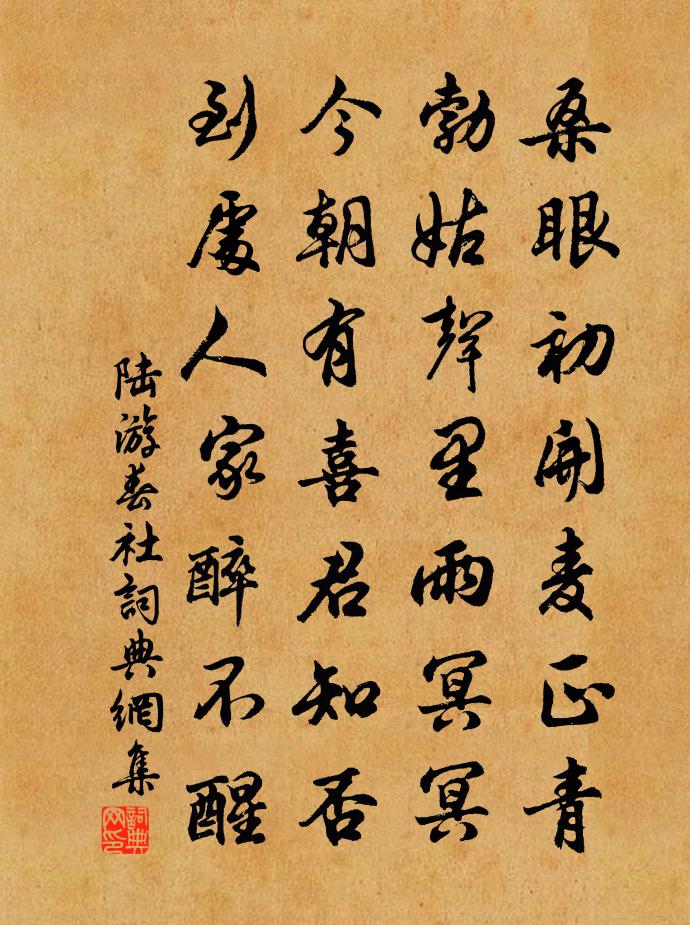 桑眼初開麦正青
勃姑聲里雨冥冥
今朝有喜君知否
到處人家醉不醒
陆游春社詞典網集
詞典
网印